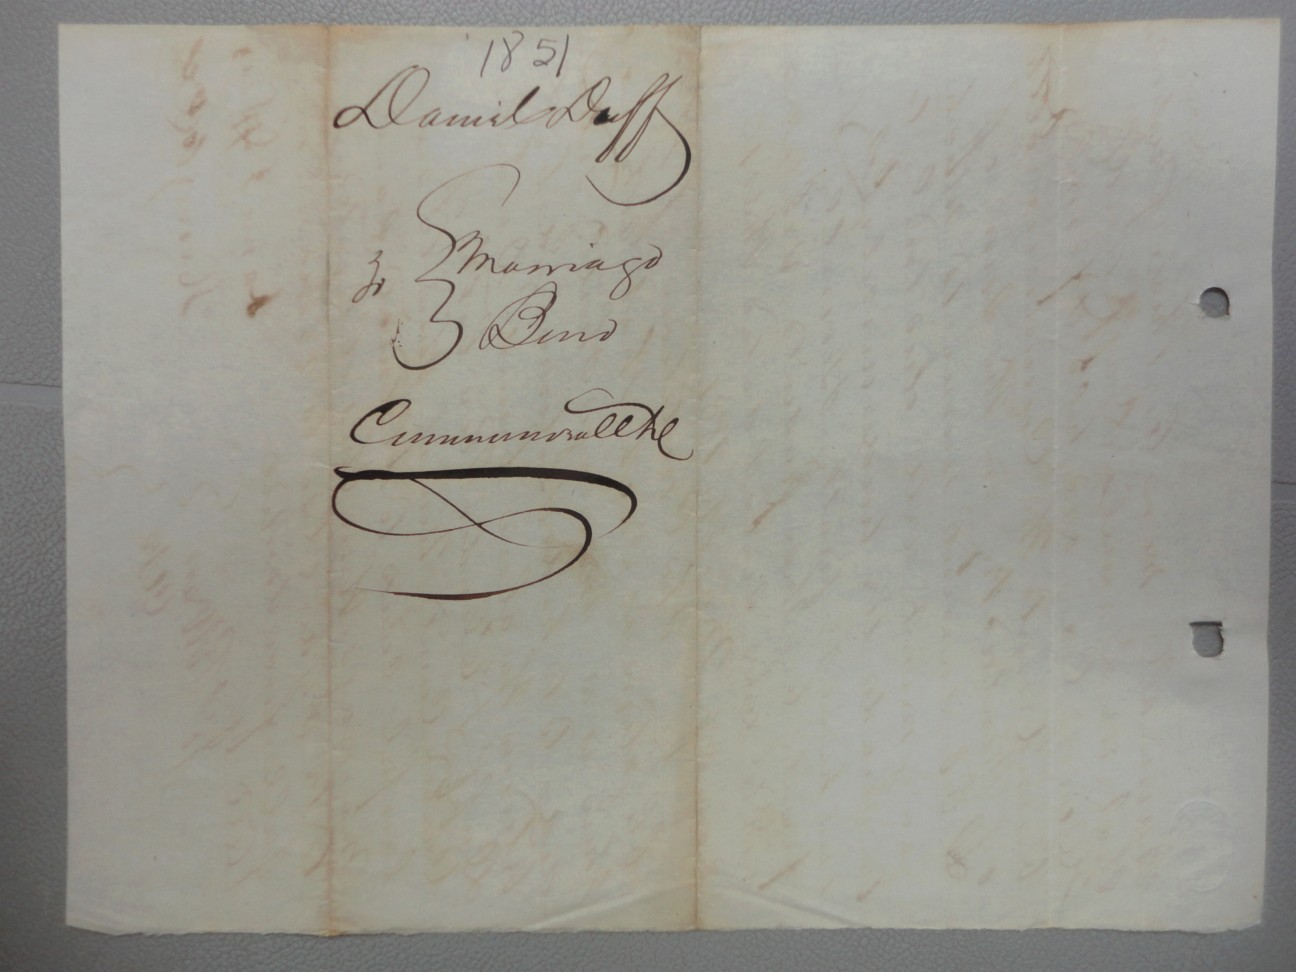 1851
Daniel Duff
To Marriage
Bond
Commonwealth